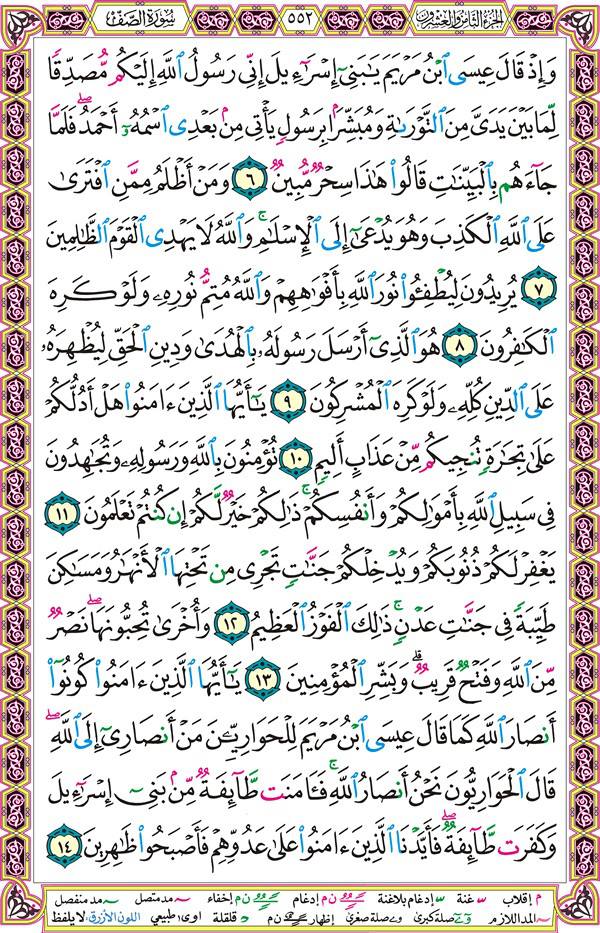 الجزء الثامن والعشرون ٥٥٢ سورة الصف
وَإِذْ قَالَ عِيسَى ٱبْنُ مَرْيَمَ يَـٰبَنِىٓ إِسْرَٰٓءِيلَ إِنِّى رَسُولُ ٱللَّهِ إِلَيْكُم مُّصَدِّقًا
لِّمَا بَيْنَ يَدَىَّ مِنَ ٱلتَّوْرَىٰةِ وَمُبَشِّرًۢا بِرَسُولٍ يَأْتِى مِنۢ بَعْدِى ٱسْمُهُۥٓ أَحْمَدُ ۖ فَلَمَّا
جَآءَهُم بِٱلْبَيِّنَـٰتِ قَالُوا۟ هَـٰذَا سِحْرٌ مُّبِينٌ ٦ وَمَنْ أَظْلَمُ مِمَّنِ ٱفْتَرَىٰ
عَلَى ٱللَّهِ ٱلْكَذِبَ وَهُوَ يُدْعَىٰٓ إِلَى ٱلْإِسْلَـٰمِ ۚ وَٱللَّهُ لَا يَهْدِى ٱلْقَوْمَ ٱلظَّـٰلِمِينَ
٧ يُرِيدُونَ لِيُطْفِـُٔوا۟ نُورَ ٱللَّهِ بِأَفْوَٰهِهِمْ وَٱللَّهُ مُتِمُّ نُورِهِۦ وَلَوْ كَرِهَ
ٱلْكَـٰفِرُونَ ٨ هُوَ ٱلَّذِىٓ أَرْسَلَ رَسُولَهُۥ بِٱلْهُدَىٰ وَدِينِ ٱلْحَقِّ لِيُظْهِرَهُۥ
عَلَى ٱلدِّينِ كُلِّهِۦ وَلَوْ كَرِهَ ٱلْمُشْرِكُونَ ٩ يَـٰٓأَيُّهَا ٱلَّذِينَ ءَامَنُوا۟ هَلْ أَدُلُّكُمْ
عَلَىٰ تِجَـٰرَةٍ تُنجِيكُم مِّنْ عَذَابٍ أَلِيمٍ ١٠ تُؤْمِنُونَ بِٱللَّهِ وَرَسُولِهِۦ وَتُجَـٰهِدُونَ
فِى سَبِيلِ ٱللَّهِ بِأَمْوَٰلِكُمْ وَأَنفُسِكُمْ ۚ ذَٰلِكُمْ خَيْرٌ لَّكُمْ إِن كُنتُمْ تَعْلَمُونَ ١١
يَغْفِرْ لَكُمْ ذُنُوبَكُمْ وَيُدْخِلْكُمْ جَنَّـٰتٍ تَجْرِى مِن تَحْتِهَا ٱلْأَنْهَـٰرُ وَمَسَـٰكِنَ
طَيِّبَةً فِى جَنَّـٰتِ عَدْنٍ ۚ ذَٰلِكَ ٱلْفَوْزُ ٱلْعَظِيمُ ١٢ وَأُخْرَىٰ تُحِبُّونَهَا ۖ نَصْرٌ
مِّنَ ٱللَّهِ وَفَتْحٌ قَرِيبٌ ۗ وَبَشِّرِ ٱلْمُؤْمِنِينَ ١٣ يَـٰٓأَيُّهَا ٱلَّذِينَ ءَامَنُوا۟ كُونُوٓا۟
أَنصَارَ ٱللَّهِ كَمَا قَالَ عِيسَى ٱبْنُ مَرْيَمَ لِلْحَوَارِيِّـۧنَ مَنْ أَنصَارِىٓ إِلَى ٱللَّهِ ۖ
قَالَ ٱلْحَوَارِيُّونَ نَحْنُ أَنصَارُ ٱللَّهِ ۖ فَـَٔامَنَت طَّآئِفَةٌ مِّنۢ بَنِىٓ إِسْرَٰٓءِيلَ
وَكَفَرَت طَّآئِفَةٌ ۖ فَأَيَّدْنَا ٱلَّذِينَ ءَامَنُوا۟ عَلَىٰ عَدُوِّهِمْ فَأَصْبَحُوا۟ ظَـٰهِرِينَ ١٤
م إقلاب س غنة إدغام بلاغنة ن م إدغام إخفاء مد متصل مد منفصل
المد اللازم صلة كبرى صلة صغرى إظهار ن م قلقلة اوى طبيعي اللون الأزرق لا يلفظ